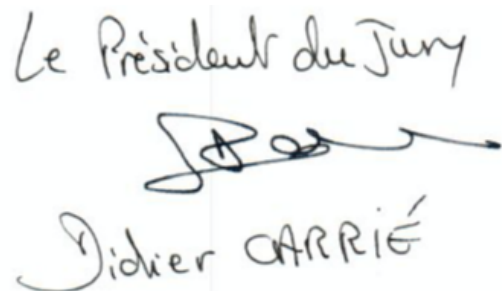 Le Président du Jury
Didier CARRIÉ